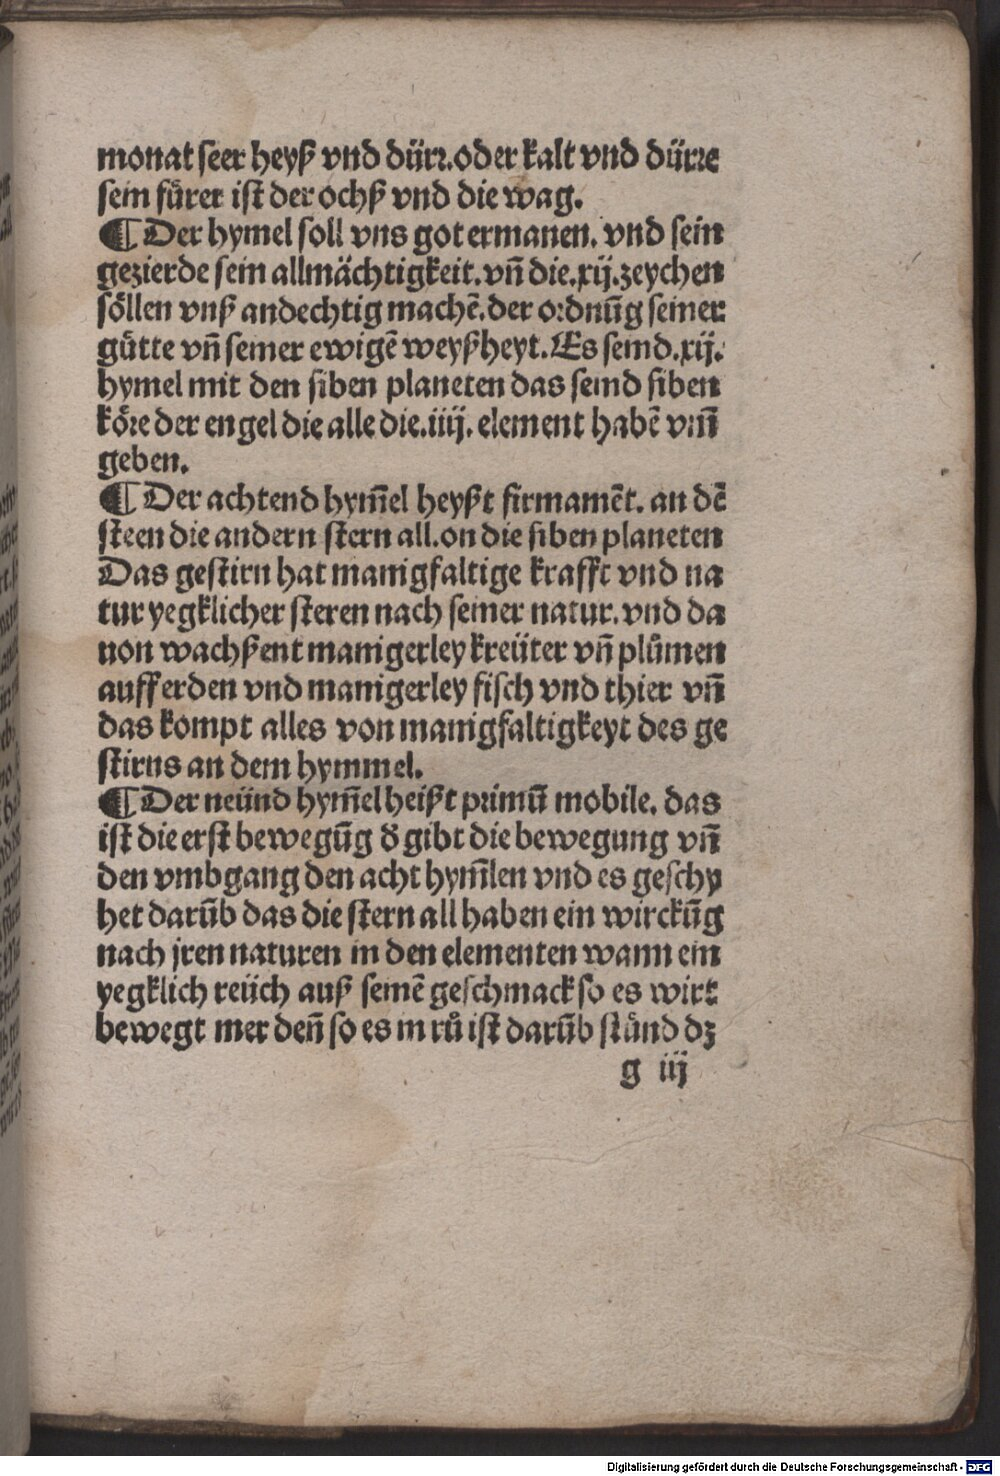 monat seer heyß vnd dürꝛ.oder kalt vnd dürꝛe
sein fürer ist der ochß vnd die wag.
¶ Der hymel soll vns got ermanen. vnd sein
gezierde sein allmächtigkeit.vn̄ die.xij.zeychen
söllen vnß andechtig machē.der oꝛdnūg seiner
gütte vn̄ seiner ewigē weyßheyt.Es seind.xij.
hymel mit den siben planeten das seind siben
köꝛe der engel die alle die.iiij. element habē vm̄
geben.
¶ Der achtend hym̄el heyßt firmamēt. an dē
steen die andern stern all.on die siben planeten
Das gestirn hat manigfaltige krafft vnd na
tur yegklicher steren nach seiner natur.vnd da
uon wachßent manigerley kreüter vn̄ plůmen
auff erden vnd manigerley fisch vnd thier vn̄
das kompt alles von manigfaltigkeyt des ge
stirns an dem hymmel.
¶ Der neünd hym̄el heißt primū mobile. das
ist die erst bewegūg d̕ gibt die bewegung vn̄
den vmbgang den acht hym̄len vnd es geschy
het darūb das die stern all haben ein wirckūg
nach jren naturen in den elementen wann ein
yegklich reüch auß seinē geschmack so es wirt
bewegt mer den̄ so es in rů ist darūb stůnd dz
g iij
Digitalisierung gefördert durch die Deutsche Forschungsgemeinschaft - DFG